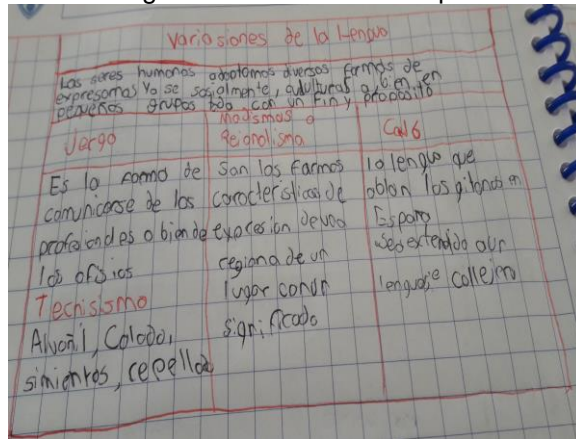 Variasiones de la Lengua
Los seres humanos adoptamos diversos formas de
expresarnos Ya se sosialmente, culturas o bien en
pequeños grupos todo con un fin y proposito
Jerga
Modismos o
Reionalisma
Caló
Es la forma de
comunicarse de los
profesionales o bien de
los ofisios
Tecnisismo
Alvañil, Colado,
simientos, repella
Son las formas
caracteristicas de
expresion de una
regiona de un
lugar con un
significado
la lengua que
ablan los gitanos en
España
se extendido a un
lenguaje callejero